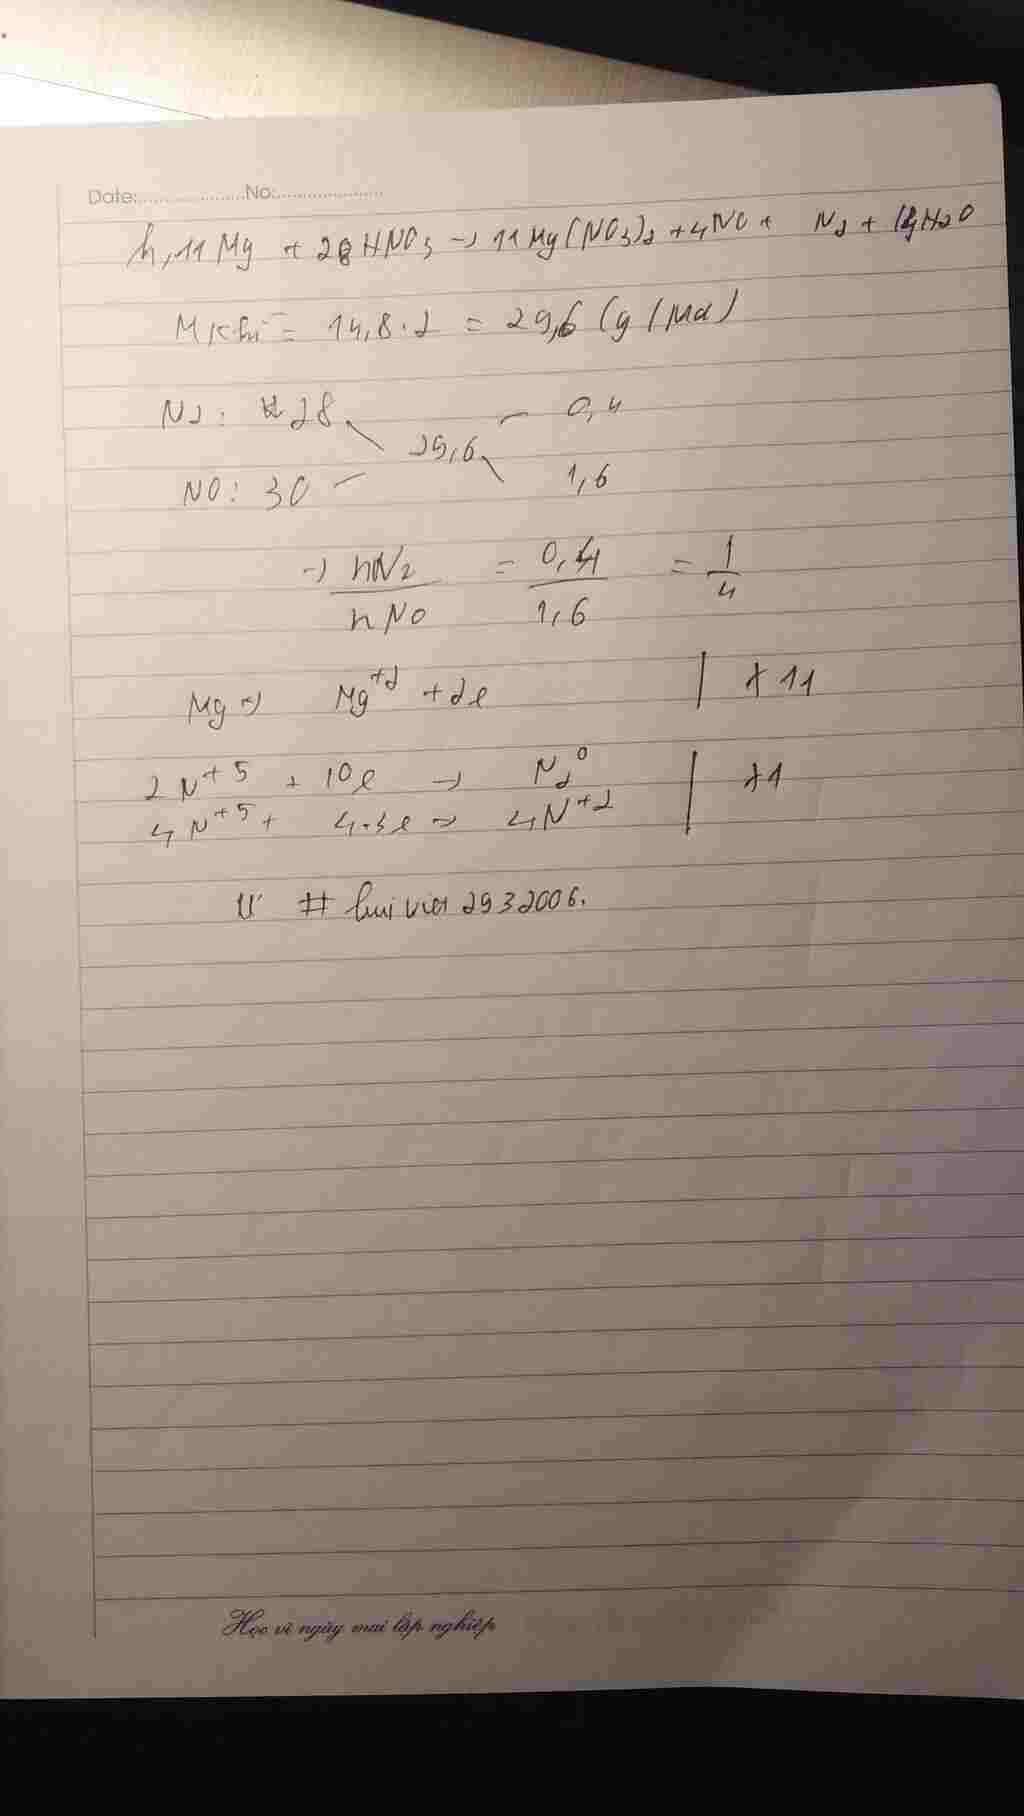 Date:....................No:....................
h, 11Mg + 28HNO3 → 11Mg(NO3)2 + 4NO + N2 + 14H2O
Mkhí = 14,8.2 = 29,6 (g/Mol)
N2: 28 0,4
29,6
NO: 30 1,6
→ nN2 / nNO = 0,4 / 1,6 = 1/4
Mg → Mg+2 + 2e | x 11
2N+5 + 10e → N2 0 | x1
4N+5 + 4.3e → 4N+2
# buiviet 2932006.
Học vì ngày mai lập nghiệp